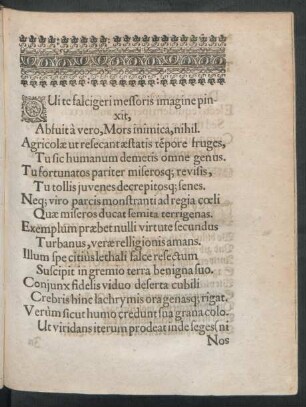 QUi te falcigeri messoris imagine pin-
xit,
Abfuit à vero, Mors inimica, nihil.
Agricolæ ut resecant æstatis tẽpore fruges,
Tu sic humanum demetis omne genus.
Tu fortunatos pariter miserosq; revisis,
Tu tollis juvenes decrepitosq; senes.
Neq; viro parcis monstranti ad regia cœli
Quæ miseros ducat semita terrigenas.
Exemplum præbet nulli virtute secundus
Turbanus, veræ relligionis amans.
Illum specitius lethali falce resectum
Suscipit in gremio terra benigna suo.
Conjunx fidelis viduo deserta cubili
Crebris hinc lachrymis ora genasq; rigat.
Verùm sicut humo credunt sua grana colo.
Ut viridans iterum prodeat inde seges, ni
Nos